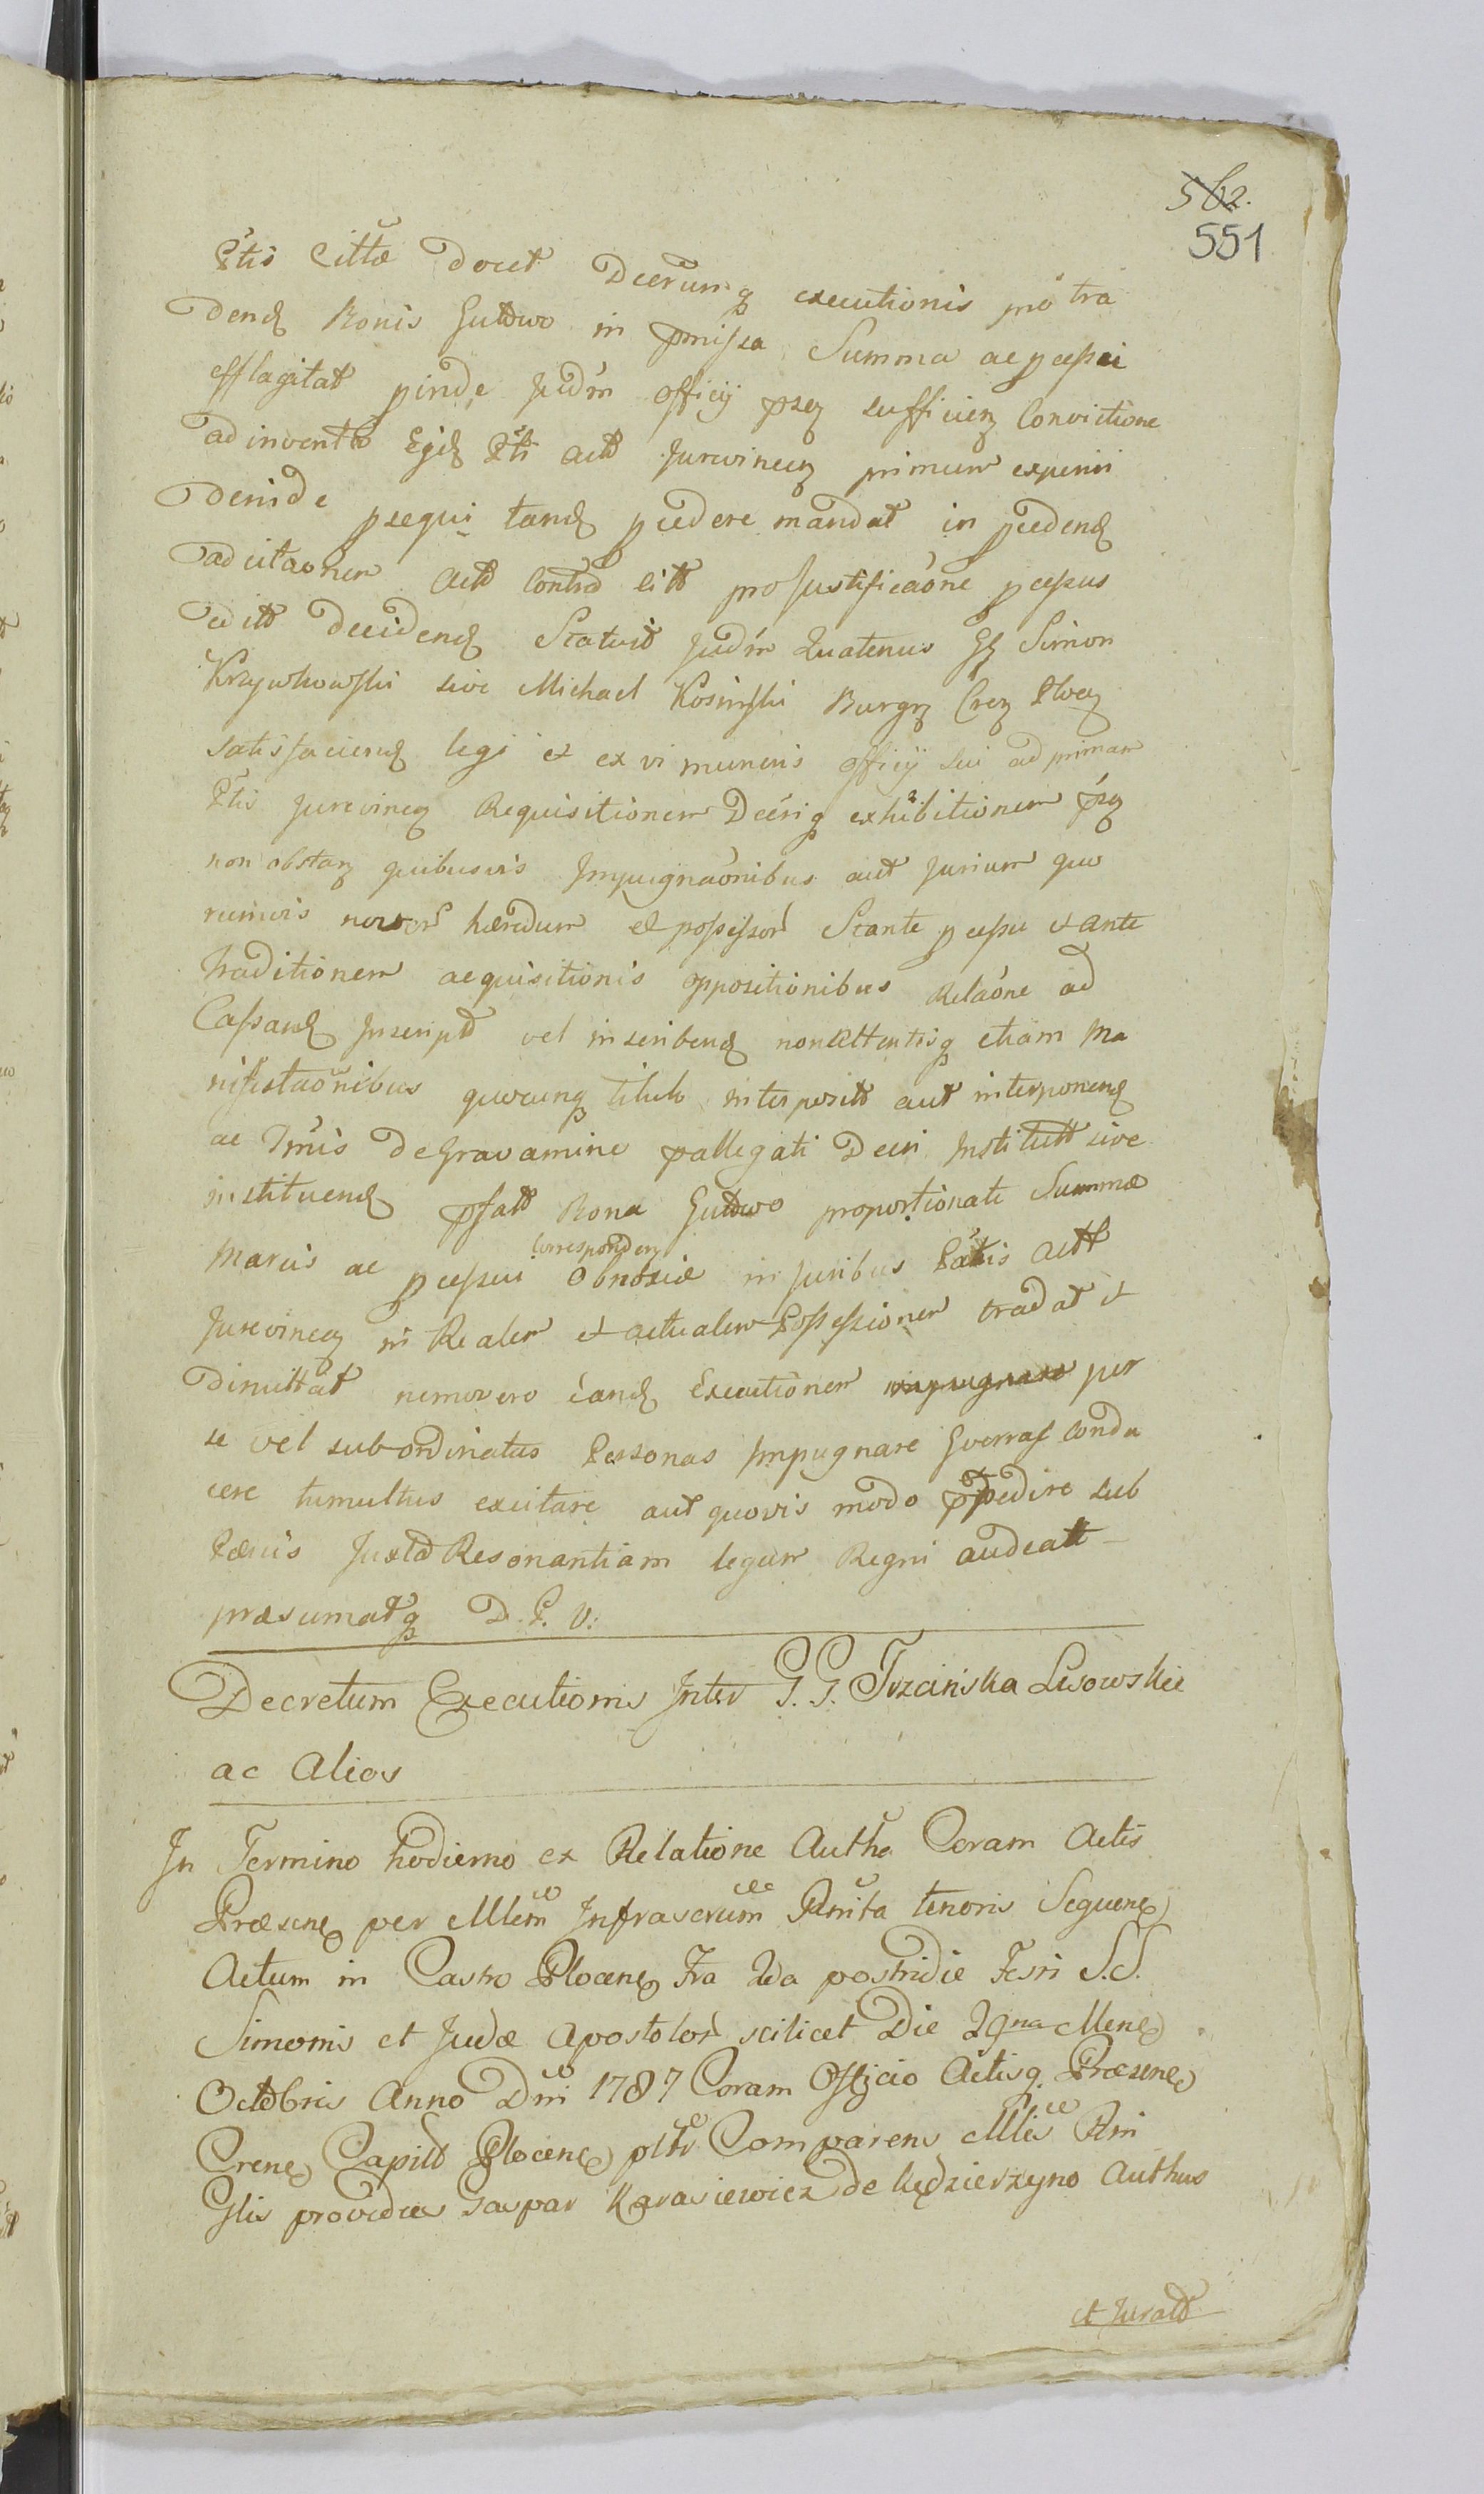 562.
551
Ptis Citta docet Decrumq executionis pro tra
dend Bonis Gutowo in pmissa Summa ac pcessui
efflagitat pinde Judm officij psen sufficien Convictione
ad invento Ejd Pti act Jurevincen primum experiri
deinde psequi tand pcedere mandat in pcedend
ad citaonem Act Contra citt pro Justificaone pcessus
edit decidend Statuit Judm Quatenus G Simon
Krzywkowski sive Michael Kosinski Burgr Cren Plocen
satisfaciend legi et ex vi muneris officij sui ad primam
Ptis Jurevincen Requisitionem Decriq exhibitionem psn
non obstan quibusvis Impugnaonibus aut Jurium quo
rumvis hæredum et possessor Stante pcessu et ante
traditionem acquisitionis oppositionibus Relaone ad
Cassand Inscript vel inscribend non Attentisq etiam Ma
nifestaonibus quocunq titulo interposit aut interponend
ac Tmis de Gravamine pallegati Decri Institutt sive
instituend pfatt Bona Gutowo proportionate Summæ
Marcis ac pcessui correspondenz obnoxiæ in Juribus Patis Actt
Jurevincen in Realem et actualem Possessionem tradat et
dimittat nemo vero eand Executionem impugnare per
se vel subordinatas Personas Impugnare Guerras condu
cere tumultus excitare aut quovis modo ppedire sub
Pænis Juxta Resonantiam legum Regni audeatt
præsumatq D. P. V:
Decretum Executionis Inter G. G. Trzcińska Lisowskie
ac Alios
In Termino hodierno ex Relatione Autha Coram Actis
Præsene per Mlem Infrascrum Pmita tenoris Sequene
Actum in Castro Plocene Fra 2da postridie Festi S.S.
Simonis et Judæ Apostolor scilicet Die 29na Mene
Octobris Anno Dni 1787 Coram Officio Actisq Præsene
Crene Capitt Plocene pltr Comparens Mlis Rni
Glis providus Gaspar Karasiewicz de Kędzierzyno Authus
et Juratt